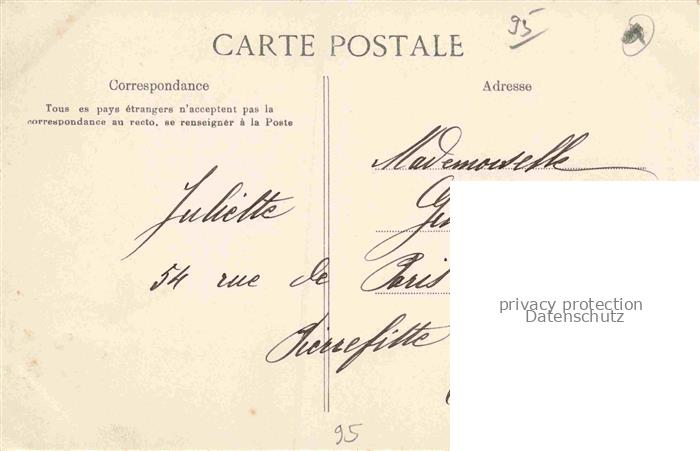 95
CARTE POSTALE
Correspondance
Tous es pays étrangers n'acceptent pas la
correspondance au recto, se renseigner à la Poste
Adresse
Mademoiselle
Juliette
54 rue de Paris
Pierrefitte
privacy protection
Datenschutz
95